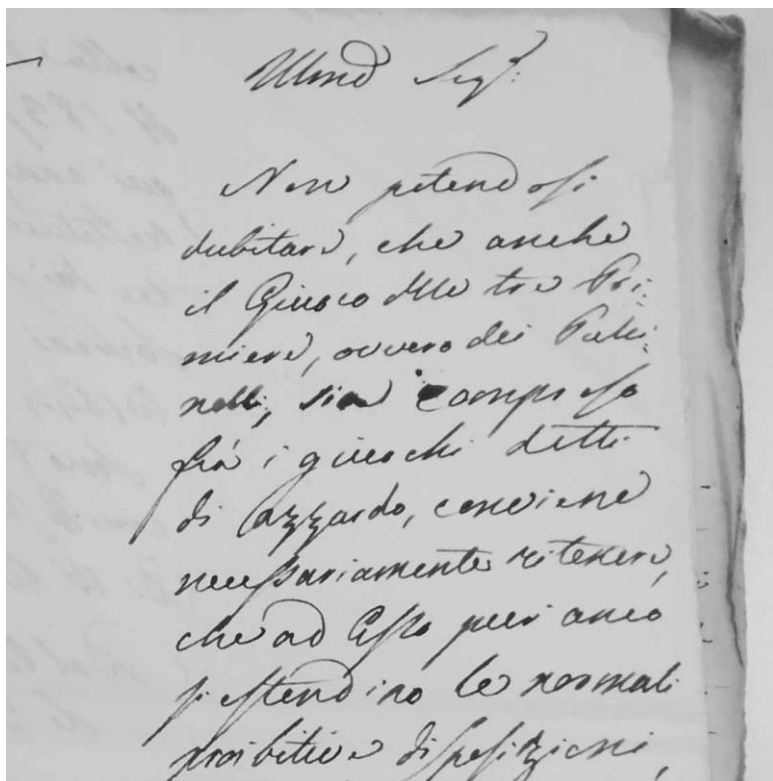 Illmo Sigr:
Non potendosi
dubitare, che anche
il Giuoco delle tre Pri:
miere, ovvero dei Pulci:
nelli, sia compreso
frà i giuochi detti
di Azzardo, conviene
necessariamente ritenere,
che ad Esso puri anco
si estendino le normali
proibitive disposizioni,